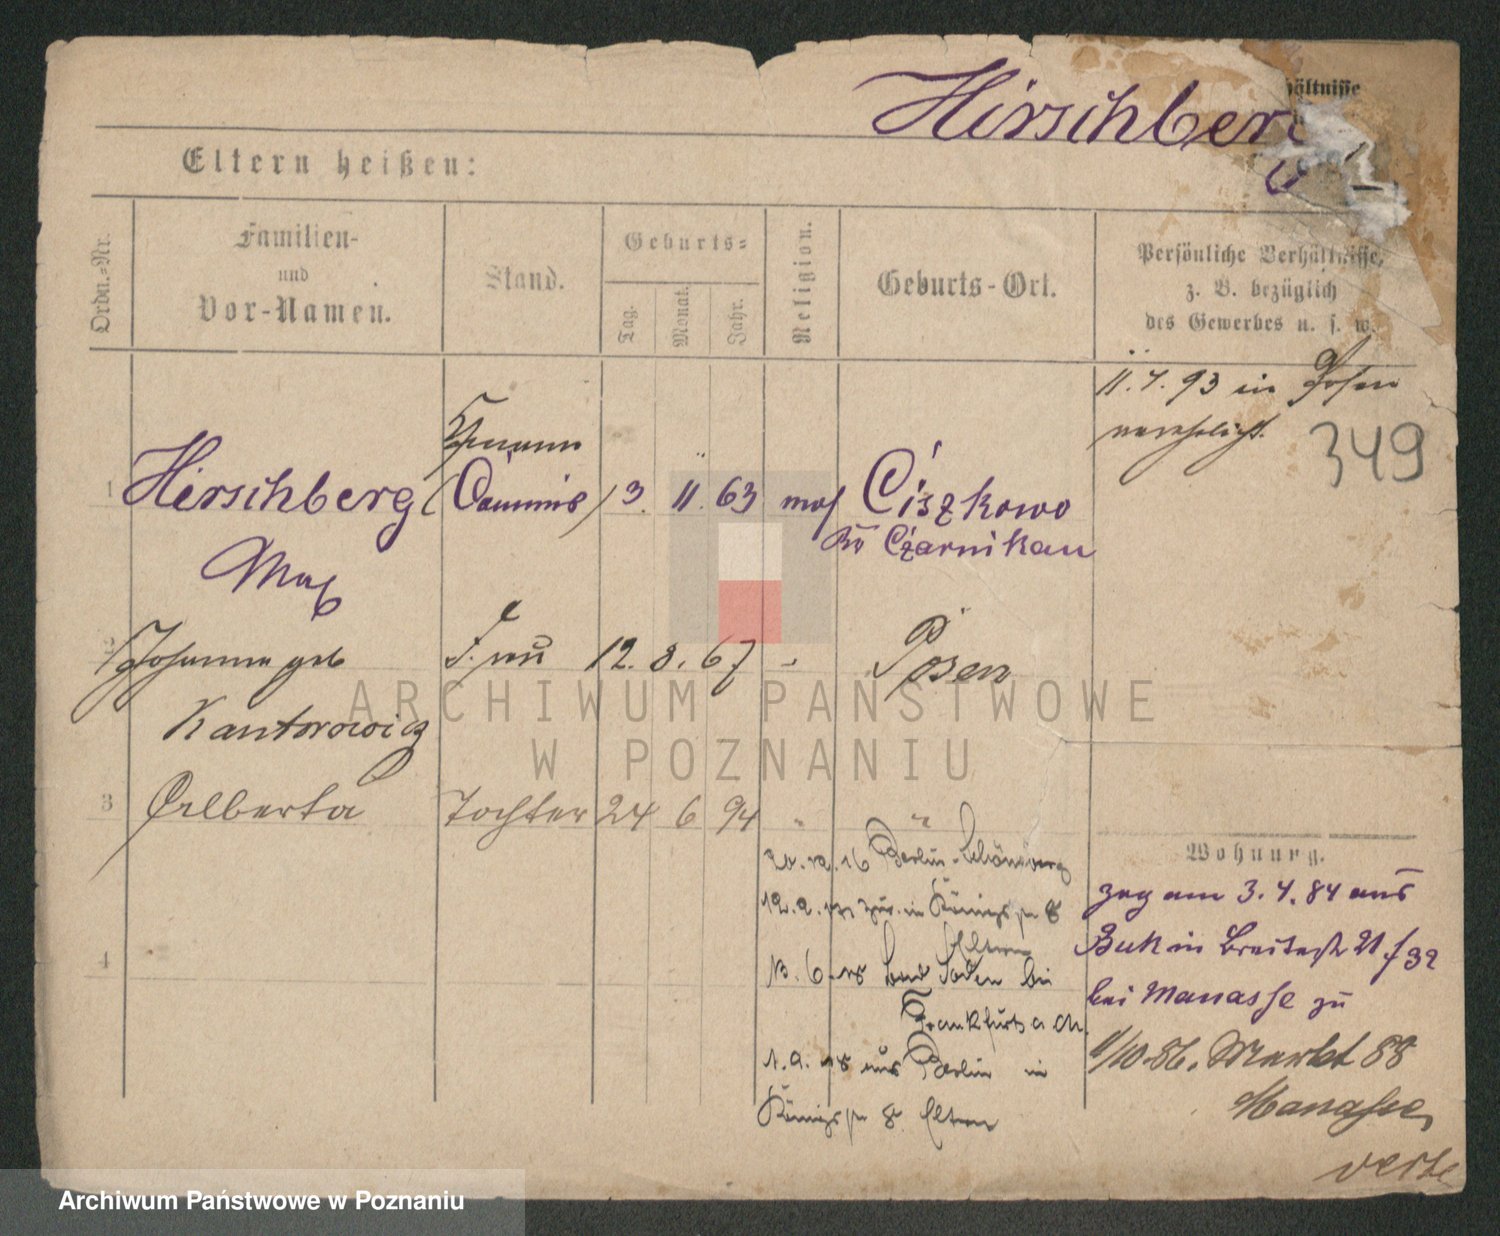 Hirschberg
hältnisse
Eltern heißen:
Ordn.-Nr.
Familien-
und
Vor-Namen.
Stand.
Geburts-
Tag.
Monat.
Jahr.
Religion.
Geburts-Ort.
Persönliche Verhältnisse,
z. B. bezüglich
des Gewerbes u. s. w.
11. 7. 93 in Posen
verehelicht.
349
1 Hirschberg (Commis) 3. 11. 63 mos Ciszkowo
Kr Czarnikau
Max
2 Johanna geb Frau 12. 8. 67 Posen
Kantorowicz
3 Alberta Tochter 24 6 94 " "
Berlin-Schöneberg
in Königspl 8
Eltern
4
13. 6. 18 Bad Soden bei
Frankfurt a M.
1. 9. 18 aus Berlin in
Königspl 8. Eltern
Wohnung.
zog am 3. 4. 84 aus
Buk in Breitestr 21 f 32
bei Manasse zu
1/10. 86. Markt 88
Manasse,
verte
ARCHIWUM PAŃSTWOWE
W POZNANIU
Archiwum Państwowe w Poznaniu